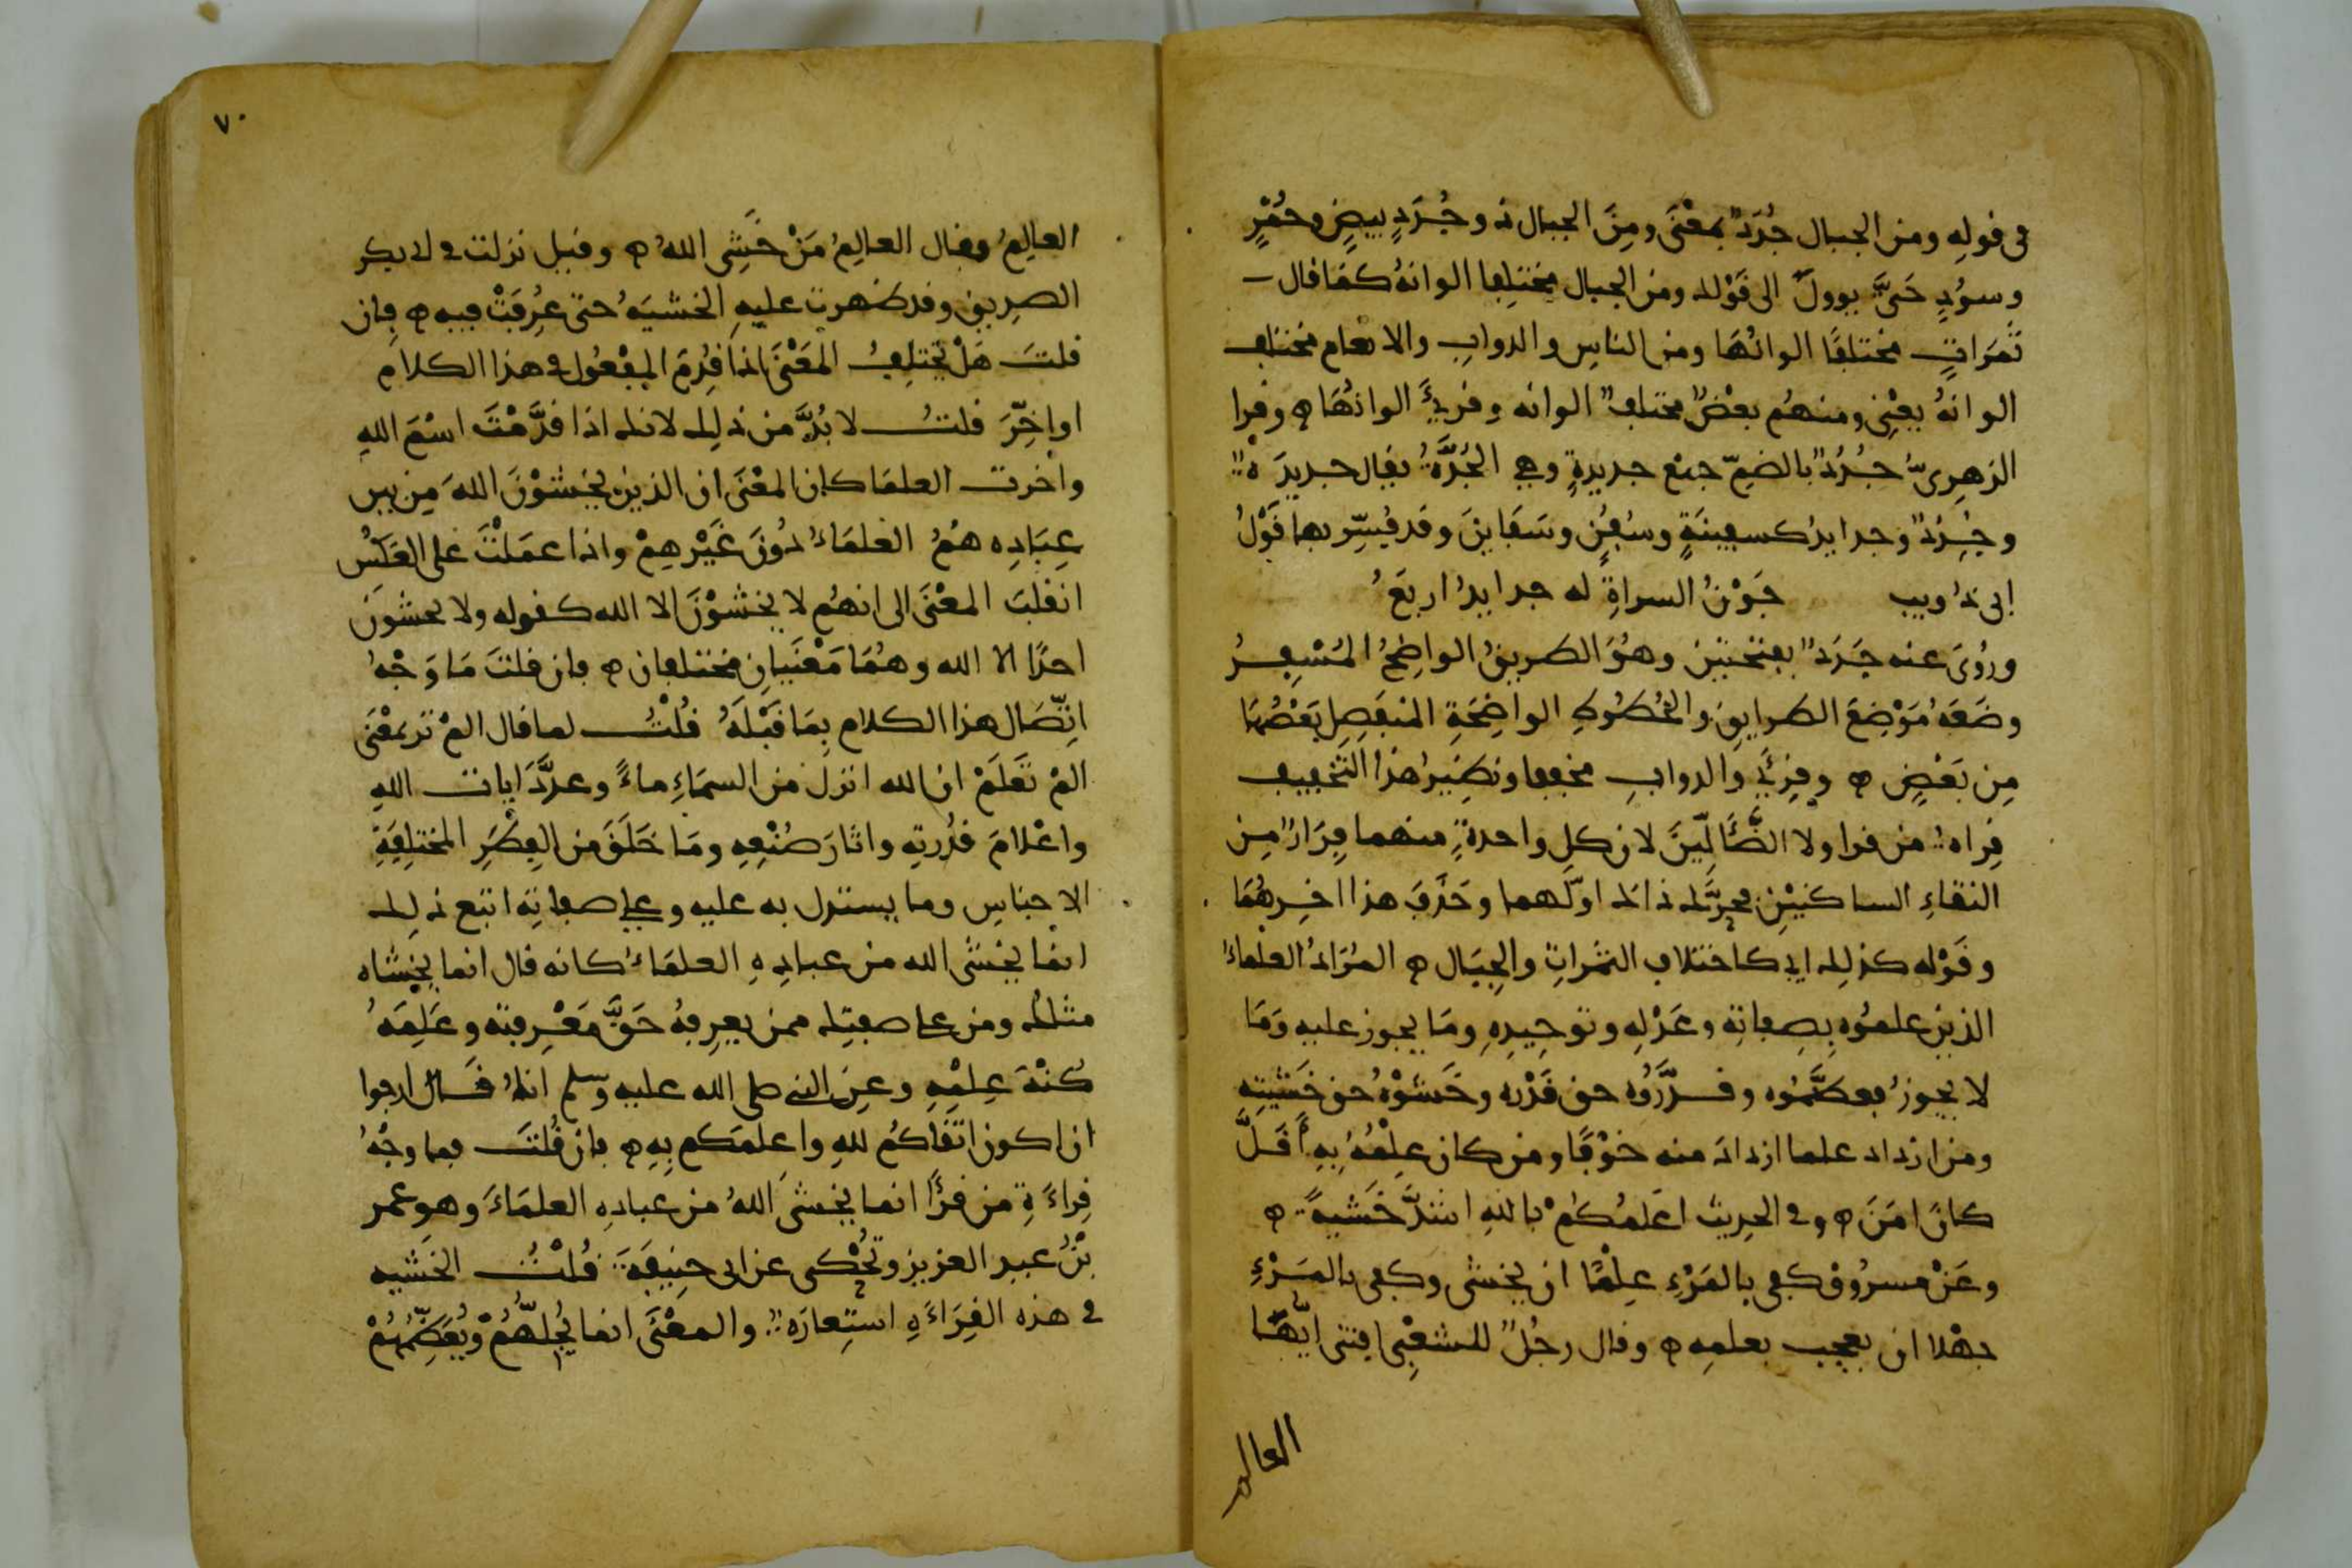 فى قولِهِ ومن الجبال جُدَدٌ بمعْنَى ومِنَ الجبال ذو جُدَدٍ بيضٍ وحُمْرٍ
وسودٍ حَتَّى يوولَ الى قَوْلك ومن الجبال مختلِفا الوانهُ كما قال
ثَمَرَاتٍ مختلفًا الوانُهَا ومن الناسِ والدوابِ والانعام مختلف
الوانهُ يعْنِى ومنهُم بعْضٌ مختلفٌ الوانه وقرئَ الوانُهَا ه وقرا
الزهرِىّ جُدُدٌ بالضمّ جمْع جديدةٍ وهى الجُدَّةُ يقال جديدَة
وجُدُدٌ وجدايدُ كسفينَةٍ وسُفُنٍ وسَفَاينَ وقد فُسِّر بها قَوْلُ
ابى ذُويب جَوْنُ السراةِ له جدايدُ اربَعُ
ورُوىَ عنه جَدَدٌ بفتحتين وهُوَ الطريقُ الواضِحُ المُسْفِرُ
وضَعَهُ مَوْضِعَ الطرايقِ والخُطُوطِ الواضِحَةِ المنفَصِلِ بَعْضُهَا
مِن بَعْضٍ ه وقرئَ والدوابِ مخففا ونظِيرُ هذا التخفيف
قِراةُ من قرا ولا الضَّأَلِّينَ لان كل واحدةٍ منهما فِرَارٌ مِن
التقاءِ الساكنَيْن محرَّك ذاك اوّلهما وحَذَفَ هذا اخِرهُمَا
وقَوْله كذلِك اى كاختلاف الثمَراتِ والجِبَال ه المُرَادُ العلْماءُ
الذين علمُوه بِصِفاتِه وعَدْلِهِ وتوحِيدِهِ ومَا يجوز عليه وَمَا
لا يجوزُ فعظَّمُوه وقدَّرُوه حق قَدْرِه وخَشوْهُ حق خَشْيتِهِ
ومن ازداد علما ازدادَ منه خوْفًا ومن كان عِلْمُهُ بِهِ أَقلَّ
كانَ امَنَ ه وفى الحديث اعَلمُكُمْ باللهِ اشدَّ خَشيةً ه
وعَنْ مسرُوق كفى بالمَرْءِ عِلْمًا ان يخشى وكفى بالمَرْءِ
جهْلا ان يعجب بعلمِهِ ه وقال رجُلٌ للشعْبِى افتنى ايّهَا
العالم
٧٠
العالِمُ وقال العالِمُ مَنْ خَشِى اللهَ ه وقيل نزلت فى ابى بكر
الصديق وقد ظهرت عليهِ الخشيَهُ حتى عُرِفَتْ فيه ه فان
قلتَ هَلْ يختلِفُ المعْنَى اذا قُدِمَ المفْعُول فى هذا الكلام
او اخِّرَ قلتُ لا بُدَّ من ذلِك لانك اذا قدَّمْتَ اسْمَ اللهِ
واخرت العلمَا كان المعْنَى ان الذين يخشَوْنَ اللهَ مِن بين
عِبَادِه هُمُ العُلمَاءُ دُونَ غَيْرهِمْ واذا عمَلتَ على العَكْسِ
انقلبَ المعْنَى الى انهُم لا يخشوْنَ الا الله كقوله ولا يخشونَ
احدًا الا الله وهُمَا مَعْنَيانِ مختلفان ه فان قلتَ مَا وَجْهُ
اتّصَال هذا الكلام بِمَا قَبْلَهُ قُلتُ لما قال المْ تر بمعْنَى
المْ تَعْلَمْ ان الله انزلَ من السمَاءِ ماءً وعدَّدَ ايات اللهِ
واعْلامَ قُدْرتِهِ واثارَ صُنْعِهِ ومَا خَلَقَ من الفِطَرِ المختلِفَةِ
الاجناسِ وما يستدل به عليه وعلى صفاتِهِ اتبع ذلِك
انما يخشى الله من عبادِهِ العلمَاءُ كانه قال انما يخشاه
مثلُك ومن على صفتِك ممن يعرِفهُ حَقَّ مَعْرِفتِه وعَلِمَهُ
كُنْهَ عِلمْهِ وعنِ النبى صلى الله عليه وسلم انهُ قال ارجوا
ان اكون اتْقاكُم للهِ واعلمَكم بِهِ ه فان قُلتَ فما وجْهُ
قِراءَةِ من قرَأَ انما يخشىَ اللهُ من عبادِهِ العلمَاءَ وهو عمر
بْنُ عبد العزيز وتُحْكى عن ابى حنِيفَةَ قُلتُ الخشيه
فى هذه القِرَاءَةِ استِعارَةٌ والمعْنَى انما يُجلّهُمْ ويُعَظِّمُهُمْ